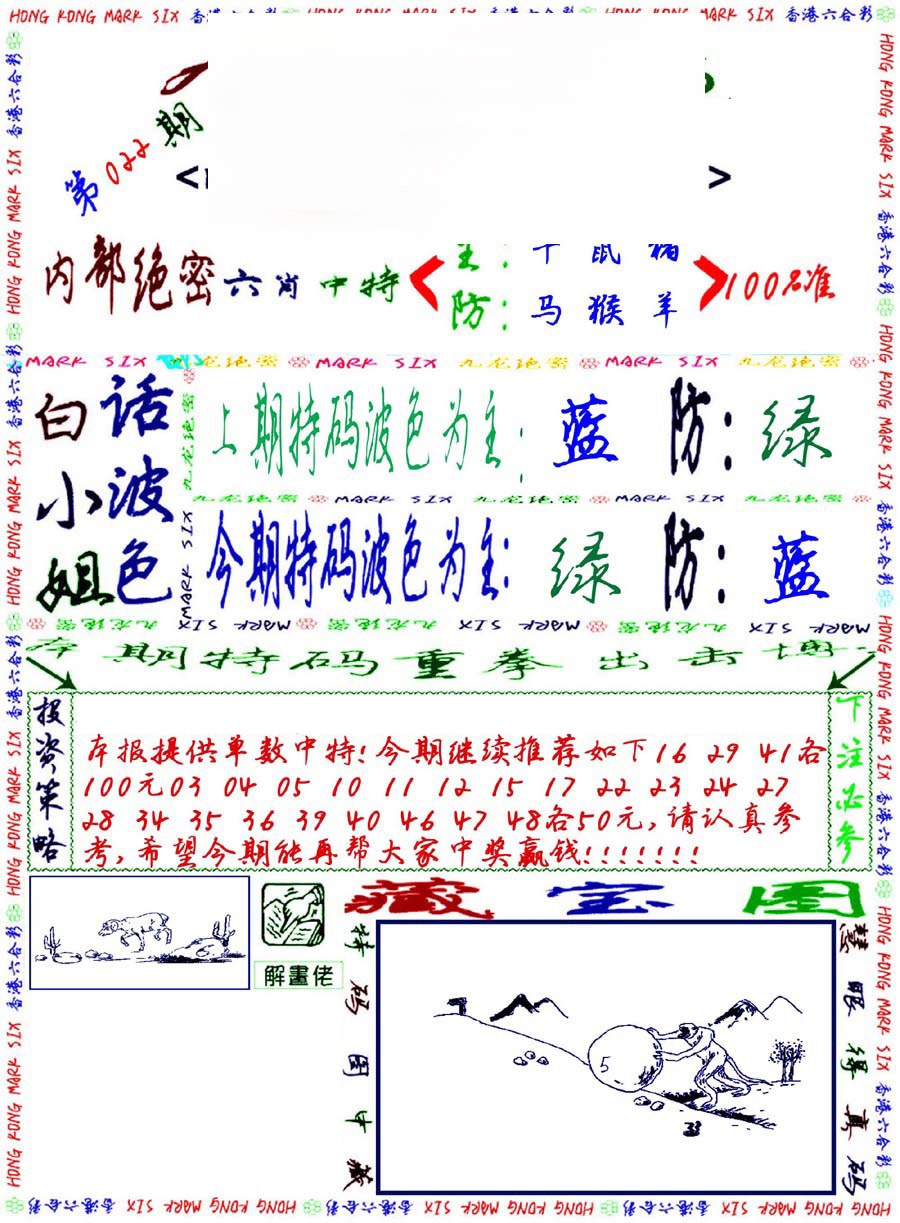 HONG KONG MARK SIX 香港六合彩 HONG KONG MARK SIX 香港六合彩
第022期
< >
内部绝密六肖中特
鼠
防：马 猴 羊
100%准
MARK SIX 九龙绝密 MARK SIX 九龙绝密 MARK SIX 九龙绝密
白话小波姐色
上期特码波色为主：蓝 防：绿
九龙绝密 MARK SIX 九龙绝密 MARK SIX 九龙绝密
今期特码波色为主：绿 防：蓝
MARK SIX 九龙绝密 MARK SIX 九龙绝密 MARK SIX 九龙绝密
期特码重拳出击
投资策略
本报提供单数中特!今期继续推荐如下16 29 41各
100元03 04 05 10 11 12 15 17 22 23 24 27
28 34 35 36 39 40 46 47 48各50元,请认真参
考,希望今期能再帮大家中奖赢钱!!!!!!!
下注必参
解畫佬
藏宝图
特码图中藏
5
33
慧眼得真码
HONG KONG MARK SIX 香港六合彩 HONG KONG MARK SIX 香港六合彩